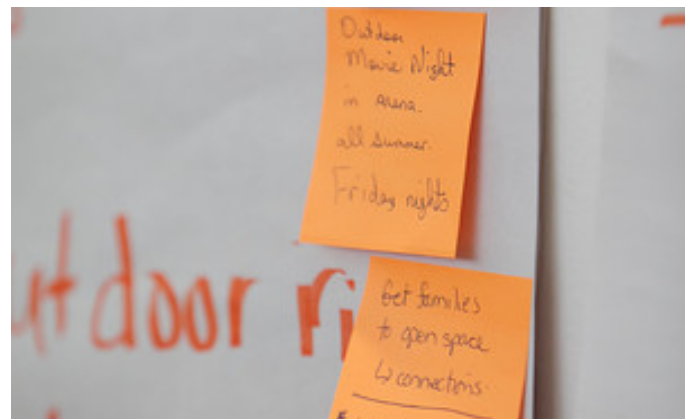 Outdoor
Movie Night
in Arena.
all summer.
Friday nights
utdoor ri
Get families
to open space
↳ connections.